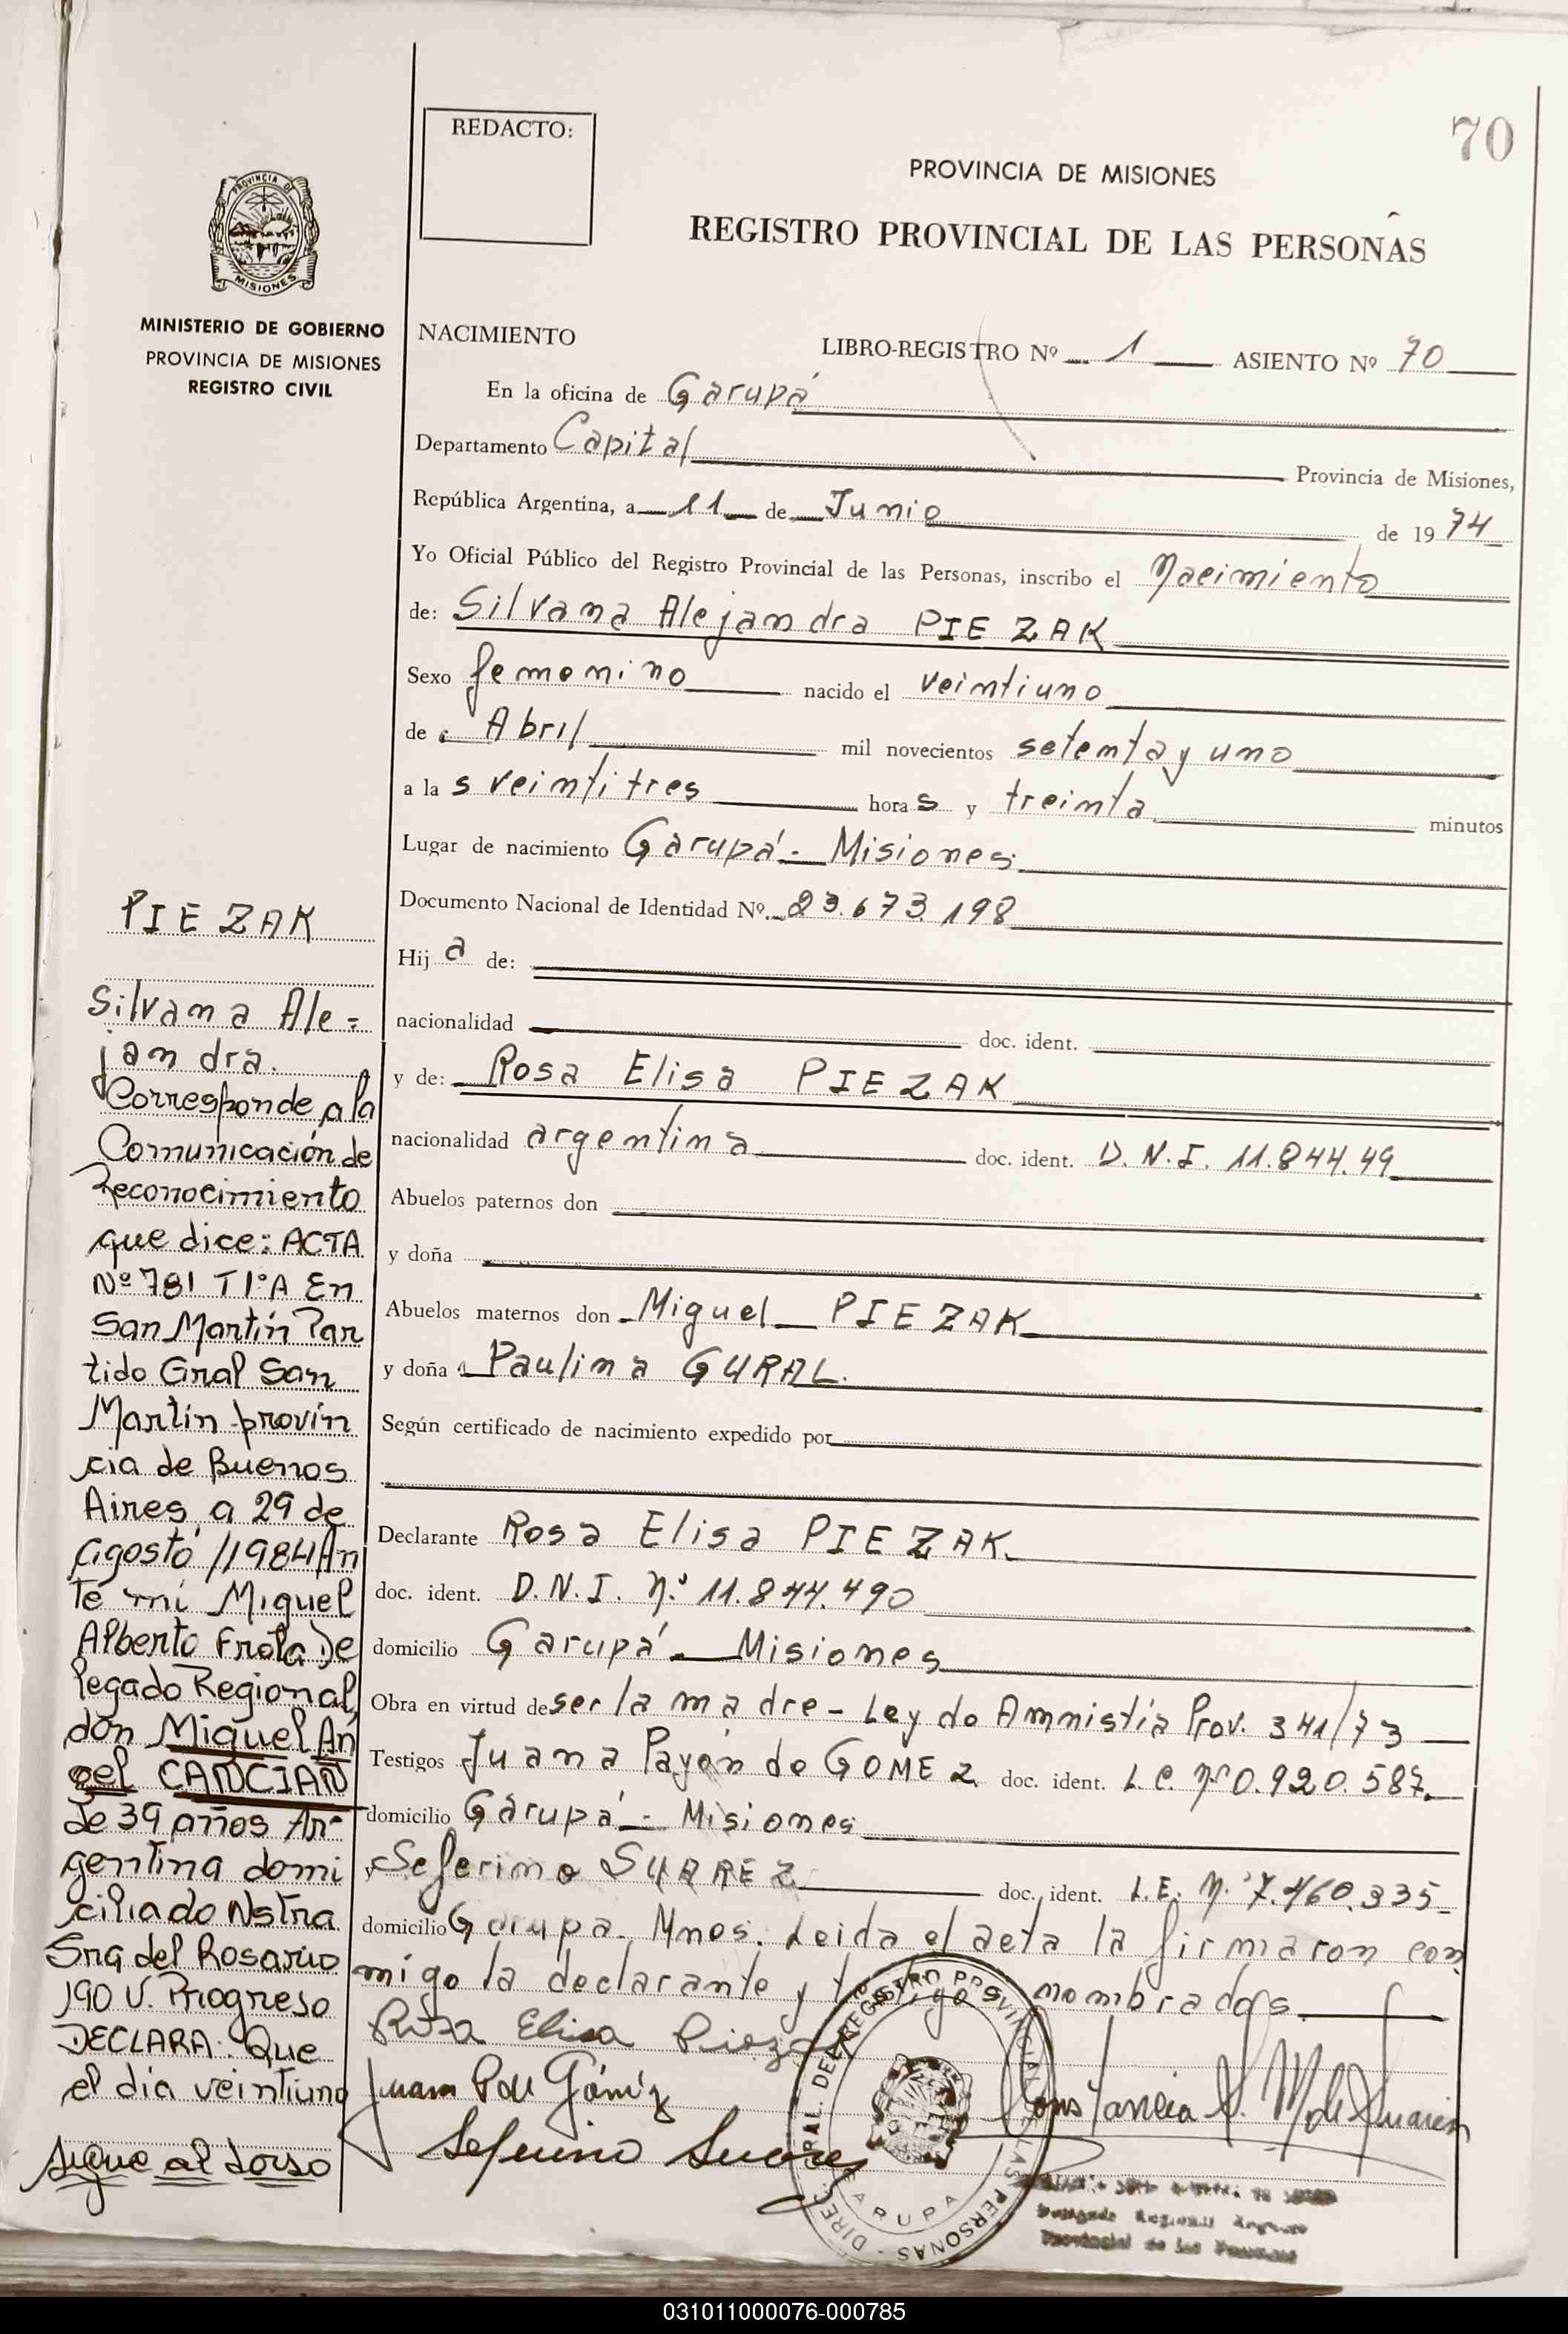 70
REDACTO:
PROVINCIA DE MISIONES
REGISTRO PROVINCIAL DE LAS PERSONAS
PROVINCIA DE
MISIONES
MINISTERIO DE GOBIERNO
PROVINCIA DE MISIONES
REGISTRO CIVIL
NACIMIENTO
LIBRO-REGISTRO Nº 1 ASIENTO Nº 70
En la oficina de Garupá
Departamento Capital Provincia de Misiones,
República Argentina, a 11 de Junio de 1974
Yo Oficial Público del Registro Provincial de las Personas, inscribo el Nacimiento
de: Silvana Alejandra PIEZAK
Sexo femenino nacido el veintiuno
de Abril mil novecientos setenta y uno
a las veintitres horas y treinta minutos
Lugar de nacimiento Garupá - Misiones
Documento Nacional de Identidad Nº 23.673.198
Hija de:
nacionalidad doc. ident.
y de: Rosa Elisa PIEZAK
nacionalidad argentina doc. ident. D.N.I. 11.844.49
Abuelos paternos don
y doña
Abuelos maternos don Miguel PIEZAK
y doña Paulina GURAL.
Según certificado de nacimiento expedido por
Declarante Rosa Elisa PIEZAK.
doc. ident. D.N.I. Nº 11.844.490
domicilio Garupá - Misiones
Obra en virtud de ser la madre - Ley de Amnistía Prov. 341/73
Testigos Juana Payón de GOMEZ doc. ident. L.C. Nº 0.920.587.
domicilio Garupá - Misiones
y Seferino SUAREZ doc. ident. L.E. Nº 7.460.335
domicilio Garupa. Mnes. Leida el acta la firmaron con
migo la declarante y testigos nombrados
Rosa Elisa Piezak
Juana Gómez
Seferino Suarez
Constancia S. M. de Suarez
DIREC. GRAL. DEL REGISTRO PROVINCIAL DE LAS PERSONAS
GARUPA
Delegada Regional Registro
Provincial de las Personas
PIEZAK
Silvana Ale=
jandra.
Corresponde a la
Comunicación de
Reconocimiento
que dice: ACTA
Nº 781 T1ºA En
San Martín Par
tido Gral San
Martín provin
cia de Buenos
Aires, a 29 de
Agosto /1984 An
te mi Miguel
Alberto Frola De
legado Regional,
don Miguel An
gel CANCIAN
de 39 años Ar
gentina domi
ciliado Nstra
Sra del Rosario
190 V. Progreso
DECLARA: Que
el día veintiuno
sigue al dorso
031011000076-000785